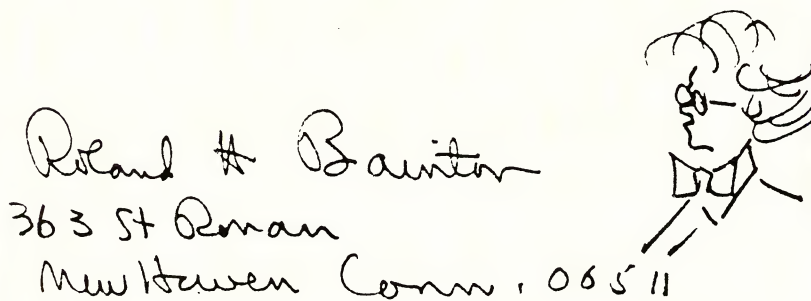 Roland H Bainton
363 St Ronan
New Haven Conn. 06511